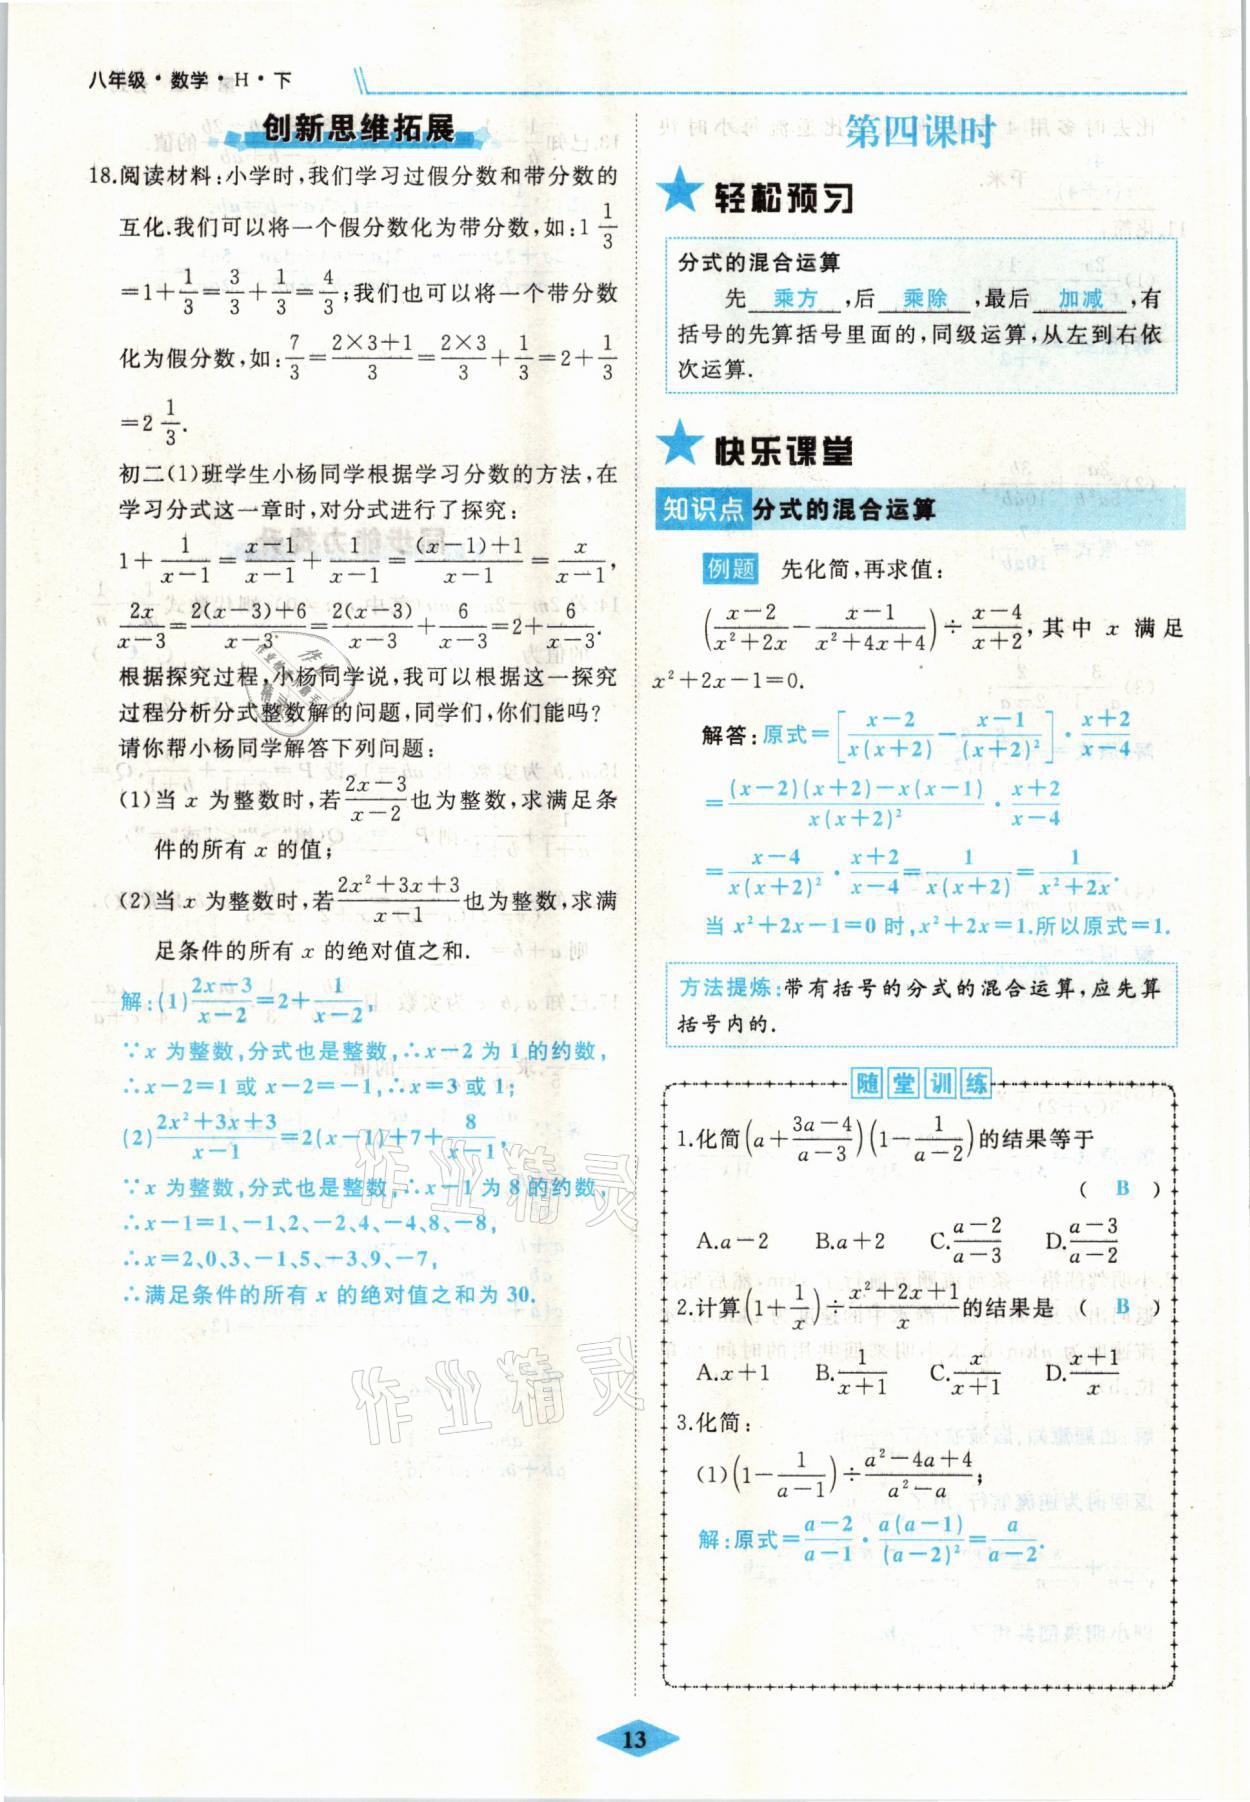 八年级·数学·H·下
创新思维拓展
18.阅读材料:小学时,我们学习过假分数和带分数的
互化.我们可以将一个假分数化为带分数,如:1 1/3
=1+1/3=3/3+1/3=4/3;我们也可以将一个带分数
化为假分数,如:7/3=(2×3+1)/3=(2×3)/3+1/3=2+1/3
=2 1/3.
初二(1)班学生小杨同学根据学习分数的方法,在
学习分式这一章时,对分式进行了探究:
1+1/(x-1)=(x-1)/(x-1)+1/(x-1)=((x-1)+1)/(x-1)=x/(x-1),
2x/(x-3)=(2(x-3)+6)/(x-3)=2(x-3)/(x-3)+6/(x-3)=2+6/(x-3).
根据探究过程,小杨同学说,我可以根据这一探究
过程分析分式整数解的问题,同学们,你们能吗?
请你帮小杨同学解答下列问题:
(1)当 x 为整数时,若(2x-3)/(x-2)也为整数,求满足条
件的所有 x 的值;
(2)当 x 为整数时,若(2x²+3x+3)/(x-1)也为整数,求满
足条件的所有 x 的绝对值之和.
解:(1)(2x-3)/(x-2)=2+1/(x-2),
∵x 为整数,分式也是整数,∴x-2 为 1 的约数,
∴x-2=1 或 x-2=-1,∴x=3 或 1;
(2)(2x²+3x+3)/(x-1)=2(x-1)+7+8/(x-1),
∵x 为整数,分式也是整数,∴x-1 为 8 的约数,
∴x-1=1、-1、2、-2、4、-4、8、-8,
∴x=2、0、3、-1、5、-3、9、-7,
∴满足条件的所有 x 的绝对值之和为 30.
第四课时
轻松预习
分式的混合运算
先 乘方 ,后 乘除 ,最后 加减 ,有
括号的先算括号里面的,同级运算,从左到右依
次运算.
快乐课堂
知识点 分式的混合运算
例题 先化简,再求值:
((x-2)/(x²+2x)-(x-1)/(x²+4x+4))÷(x-4)/(x+2),其中 x 满足
x²+2x-1=0.
解答:原式=[(x-2)/(x(x+2))-(x-1)/(x+2)²]·(x+2)/(x-4)
=((x-2)(x+2)-x(x-1))/(x(x+2)²)·(x+2)/(x-4)
=(x-4)/(x(x+2)²)·(x+2)/(x-4)=1/(x(x+2))=1/(x²+2x).
当 x²+2x-1=0 时,x²+2x=1.所以原式=1.
方法提炼:带有括号的分式的混合运算,应先算
括号内的.
随堂训练
1.化简(a+(3a-4)/(a-3))(1-1/(a-2))的结果等于
( B )
A.a-2 B.a+2 C.(a-2)/(a-3) D.(a-3)/(a-2)
2.计算(1+1/x)÷(x²+2x+1)/x的结果是 ( B )
A.x+1 B.1/(x+1) C.x/(x+1) D.(x+1)/x
3.化简:
(1)(1-1/(a-1))÷(a²-4a+4)/(a²-a);
解:原式=(a-2)/(a-1)·a(a-1)/(a-2)²=a/(a-2).
作业精灵
作业精灵
13